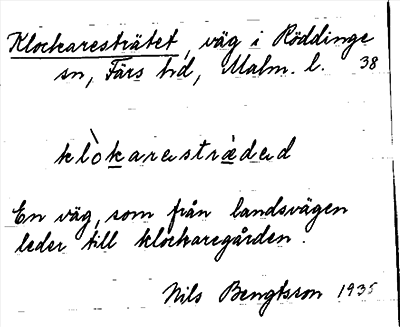 Klockaresträtet, väg i Röddinge
sn, Färs hd, Malm. l. 38
klòkarestrædɘd
En väg, som från landsvägen
leder till klockaregården.
Nils Bengtsson 1935